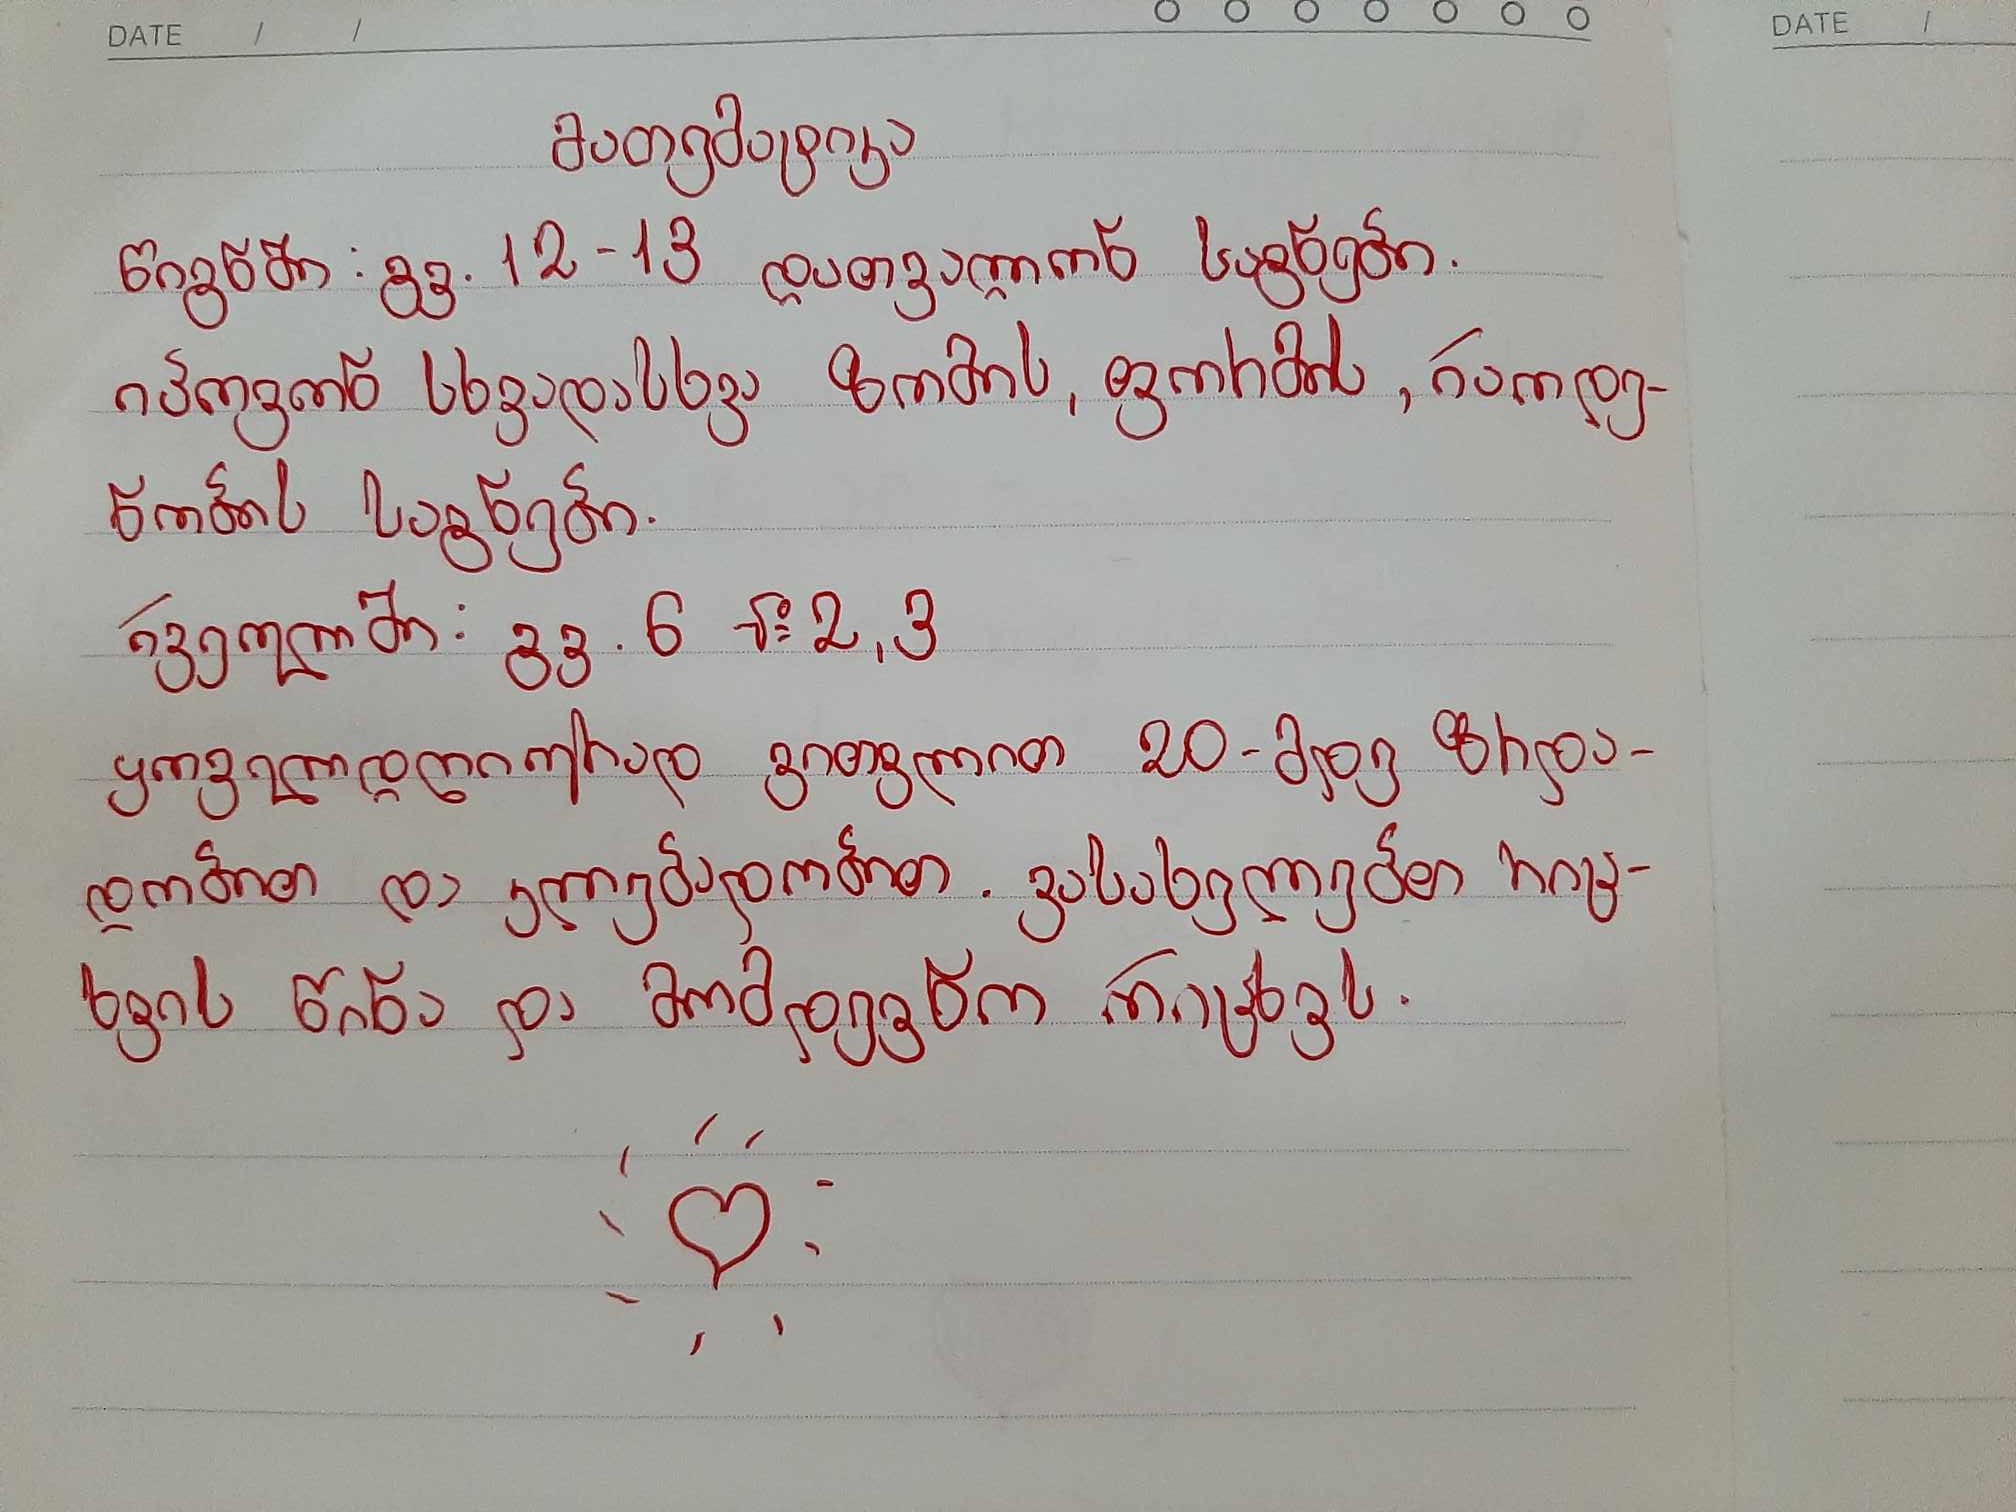 DATE / / DATE /
მათემატიკა
წიგნში: გვ. 12-13 დათვალონ საგნები.
იპოვონ სხვადასხვა ზომის, ფორმის, რაოდე-
ნობის საგნები.
რვეულში: გვ. 6 № 2,3
ყოველდღიურად ვითვლით 20-მდე ზრდა-
დობით და კლებადობით. ვასახელებთ რიც-
ხვის წინა და მომდევნო რიცხვს.